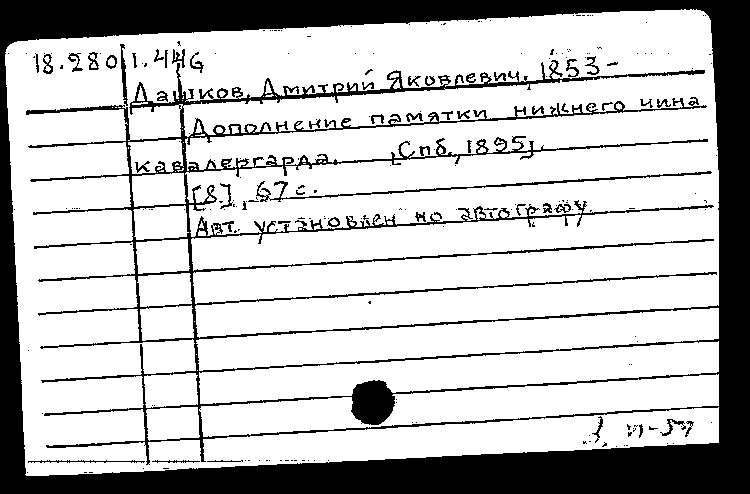 18.280.1.44G
Дашков, Дмитрий Яковлевич, 1853-
Дополнение памятки нижнего чина
кавалергарда. [Спб., 1895].
[8], 67 с.
Авт. установлен по автографу.